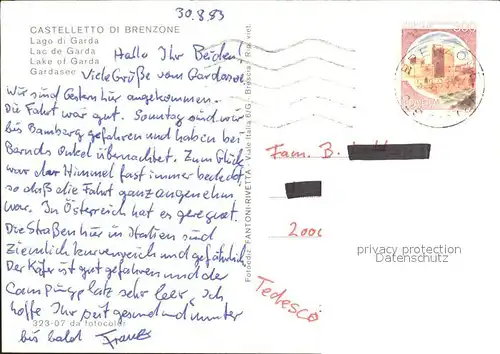 30.8.83
CASTELLETTO DI BRENZONE
Lago di Garda
Lac de Garda
Lake of Garda
Gardasee
Hallo Ihr Beiden!
Viele Grüße vom Gardasee.
Wir sind Gestern hier angekommen.
Die Fahrt war gut. Sonntag sind wir
bis Bamberg gefahren und haben bei
Bernds Onkel übernachtet. Zum Glück
war der Himmel fast immer bedeckt
so daß die Fahrt ganz angenehm
war. In Österreich hat es geregnet.
Die Straßen hier in Italien sind
ziemlich kurvenreich und gefährlich.
Der Käfer ist gut gefahren und der
Campingplatz sehr leer, Ich
hoffe Ihr seit gesund und munter
bis bald
323-07 da fotocolor
Fotoedit. FANTONI-RIVETTA - Viale Italia 6/G - Brescia - Rip. viet.
Fam. B.
2000
Tedesco
privacy protection
Datenschutz